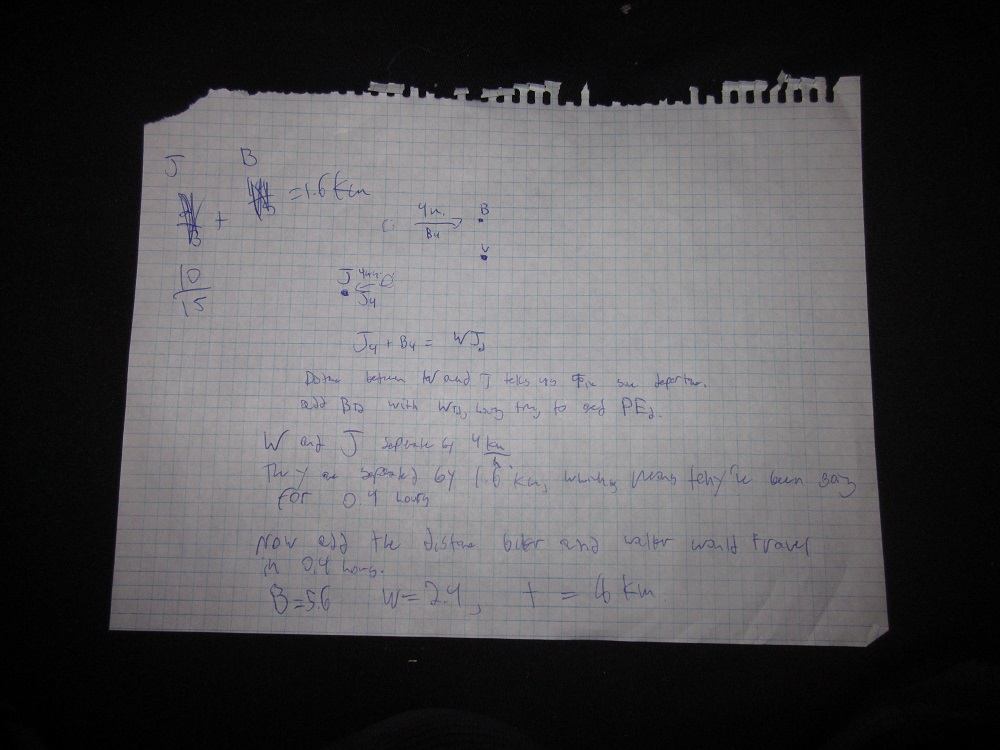 J B
+ = 1.6 Km
4m. B
B4
10
15
J
J4
J4 + B4 = WJd
between W and J tells us since departure.
add BD with WD, to PEd.
W and J separate by 4 km
h
They are separated by 1.6 km, which means they've been going
for 0.4 hours
Now add the distance biker and walker would travel
in 0.4 hours.
B=5.6 W=2.4, t = km